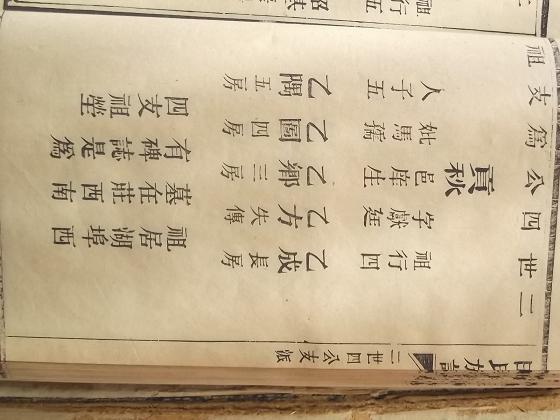 二世四公支派
二世四公爲支祖
秋貢
祖行四
字獻廷
邑庠生
妣馬孺
人子五
乙成 長房
乙方 失傳
乙鄉 三房
乙園 四房
乙隅 五房
祖居湖埠西
墓在莊西南
有碑誌是爲
四支祖塋